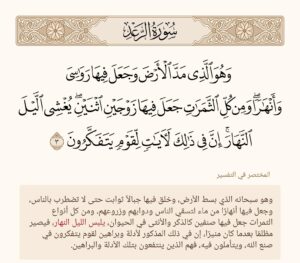 سُورَةُ الرَّعْدِ
وَهُوَ الَّذِي مَدَّ الْأَرْضَ وَجَعَلَ فِيهَا رَوَاسِيَ
وَأَنْهَارًا ۖ وَمِنْ كُلِّ الثَّمَرَاتِ جَعَلَ فِيهَا زَوْجَيْنِ اثْنَيْنِ ۖ يُغْشِي اللَّيْلَ
النَّهَارَ ۚ إِنَّ فِي ذَٰلِكَ لَآيَاتٍ لِقَوْمٍ يَتَفَكَّرُونَ ٣
المختصر في التفسير
وهو سبحانه الذي بسط الأرض، وخلق فيها جبالًا ثوابت حتى لا تضطرب بالناس،
وجعل فيها أنهارًا من ماء لتسقي الناس ودوابهم وزروعهم، ومن كل أنواع
الثمرات جعل فيها صنفين كالذكر والأنثى في الحيوان، يلبس الليل النهار، فيصير
مظلمًا بعدما كان منيرًا، إن في ذلك المذكور لأدلة وبراهين لقوم يتفكرون في
صنع الله، ويتأملون فيه، فهم الذين ينتفعون بتلك الأدلة والبراهين.